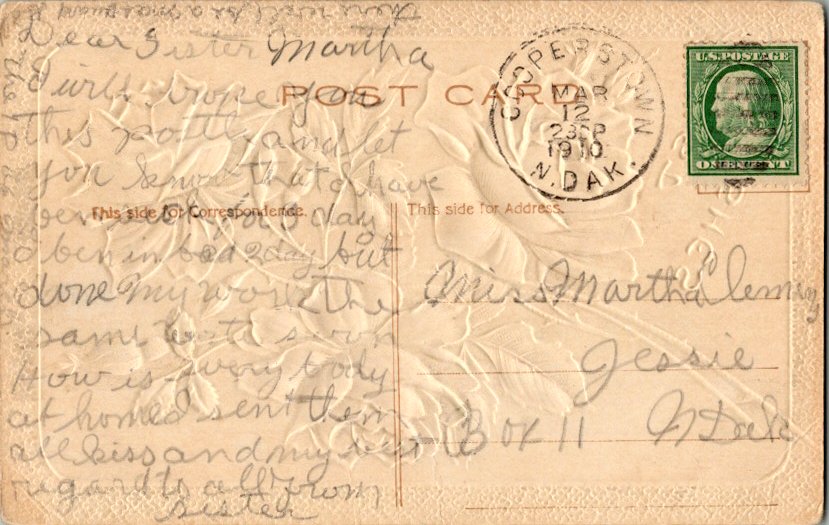 there will be a mas
Dear Sister Martha
I will wrone you
POST CARD
This postly and let
you know that I have
ben sick for 3 day
I ben in bad 2 day but
done my work the
same
How is every body
at home I sent them
all kiss and my best
regard to all from
sister
This side for Correspondence.
This side for Address.
COOPERSTOWN
MAR
12
1910
N. DAK.
U.S. POSTAGE
ONE CENT
Miss Martha
Jessie
Box 11 N Dak